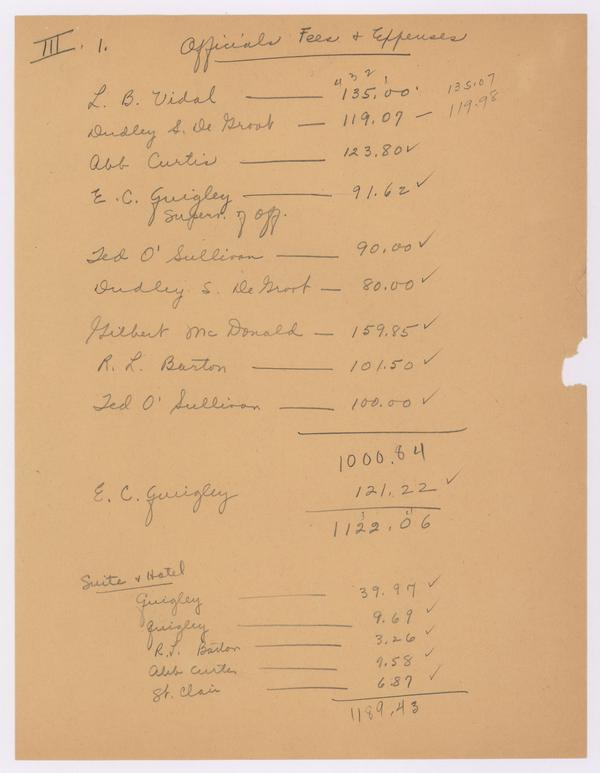 III. 1. Officials Fees & Expenses
4 3 2 1
L. B. Vidal — 135.00. 135.07
Dudley S. De Groot — 119.07 — 119.98
Abb Curtis — 123.80 ✓
E. C. Quigley — 91.62 ✓
Superv. of Off.
Ted O' Sullivan — 90.00 ✓
Dudley S. De Groot — 80.00 ✓
Gilbert Mc Donald — 159.85 ✓
R. L. Barton — 101.50 ✓
Ted O' Sullivan — 100.00 ✓
1000.84
E. C. Quigley 121.22 ✓
1122.06
Suite & Hotel
Quigley — 39.97 ✓
Quigley — 9.69 ✓
R.L. Barton — 3.26 ✓
Abb Curtis — 7.58 ✓
St. Clair — 6.87 ✓
1189.43